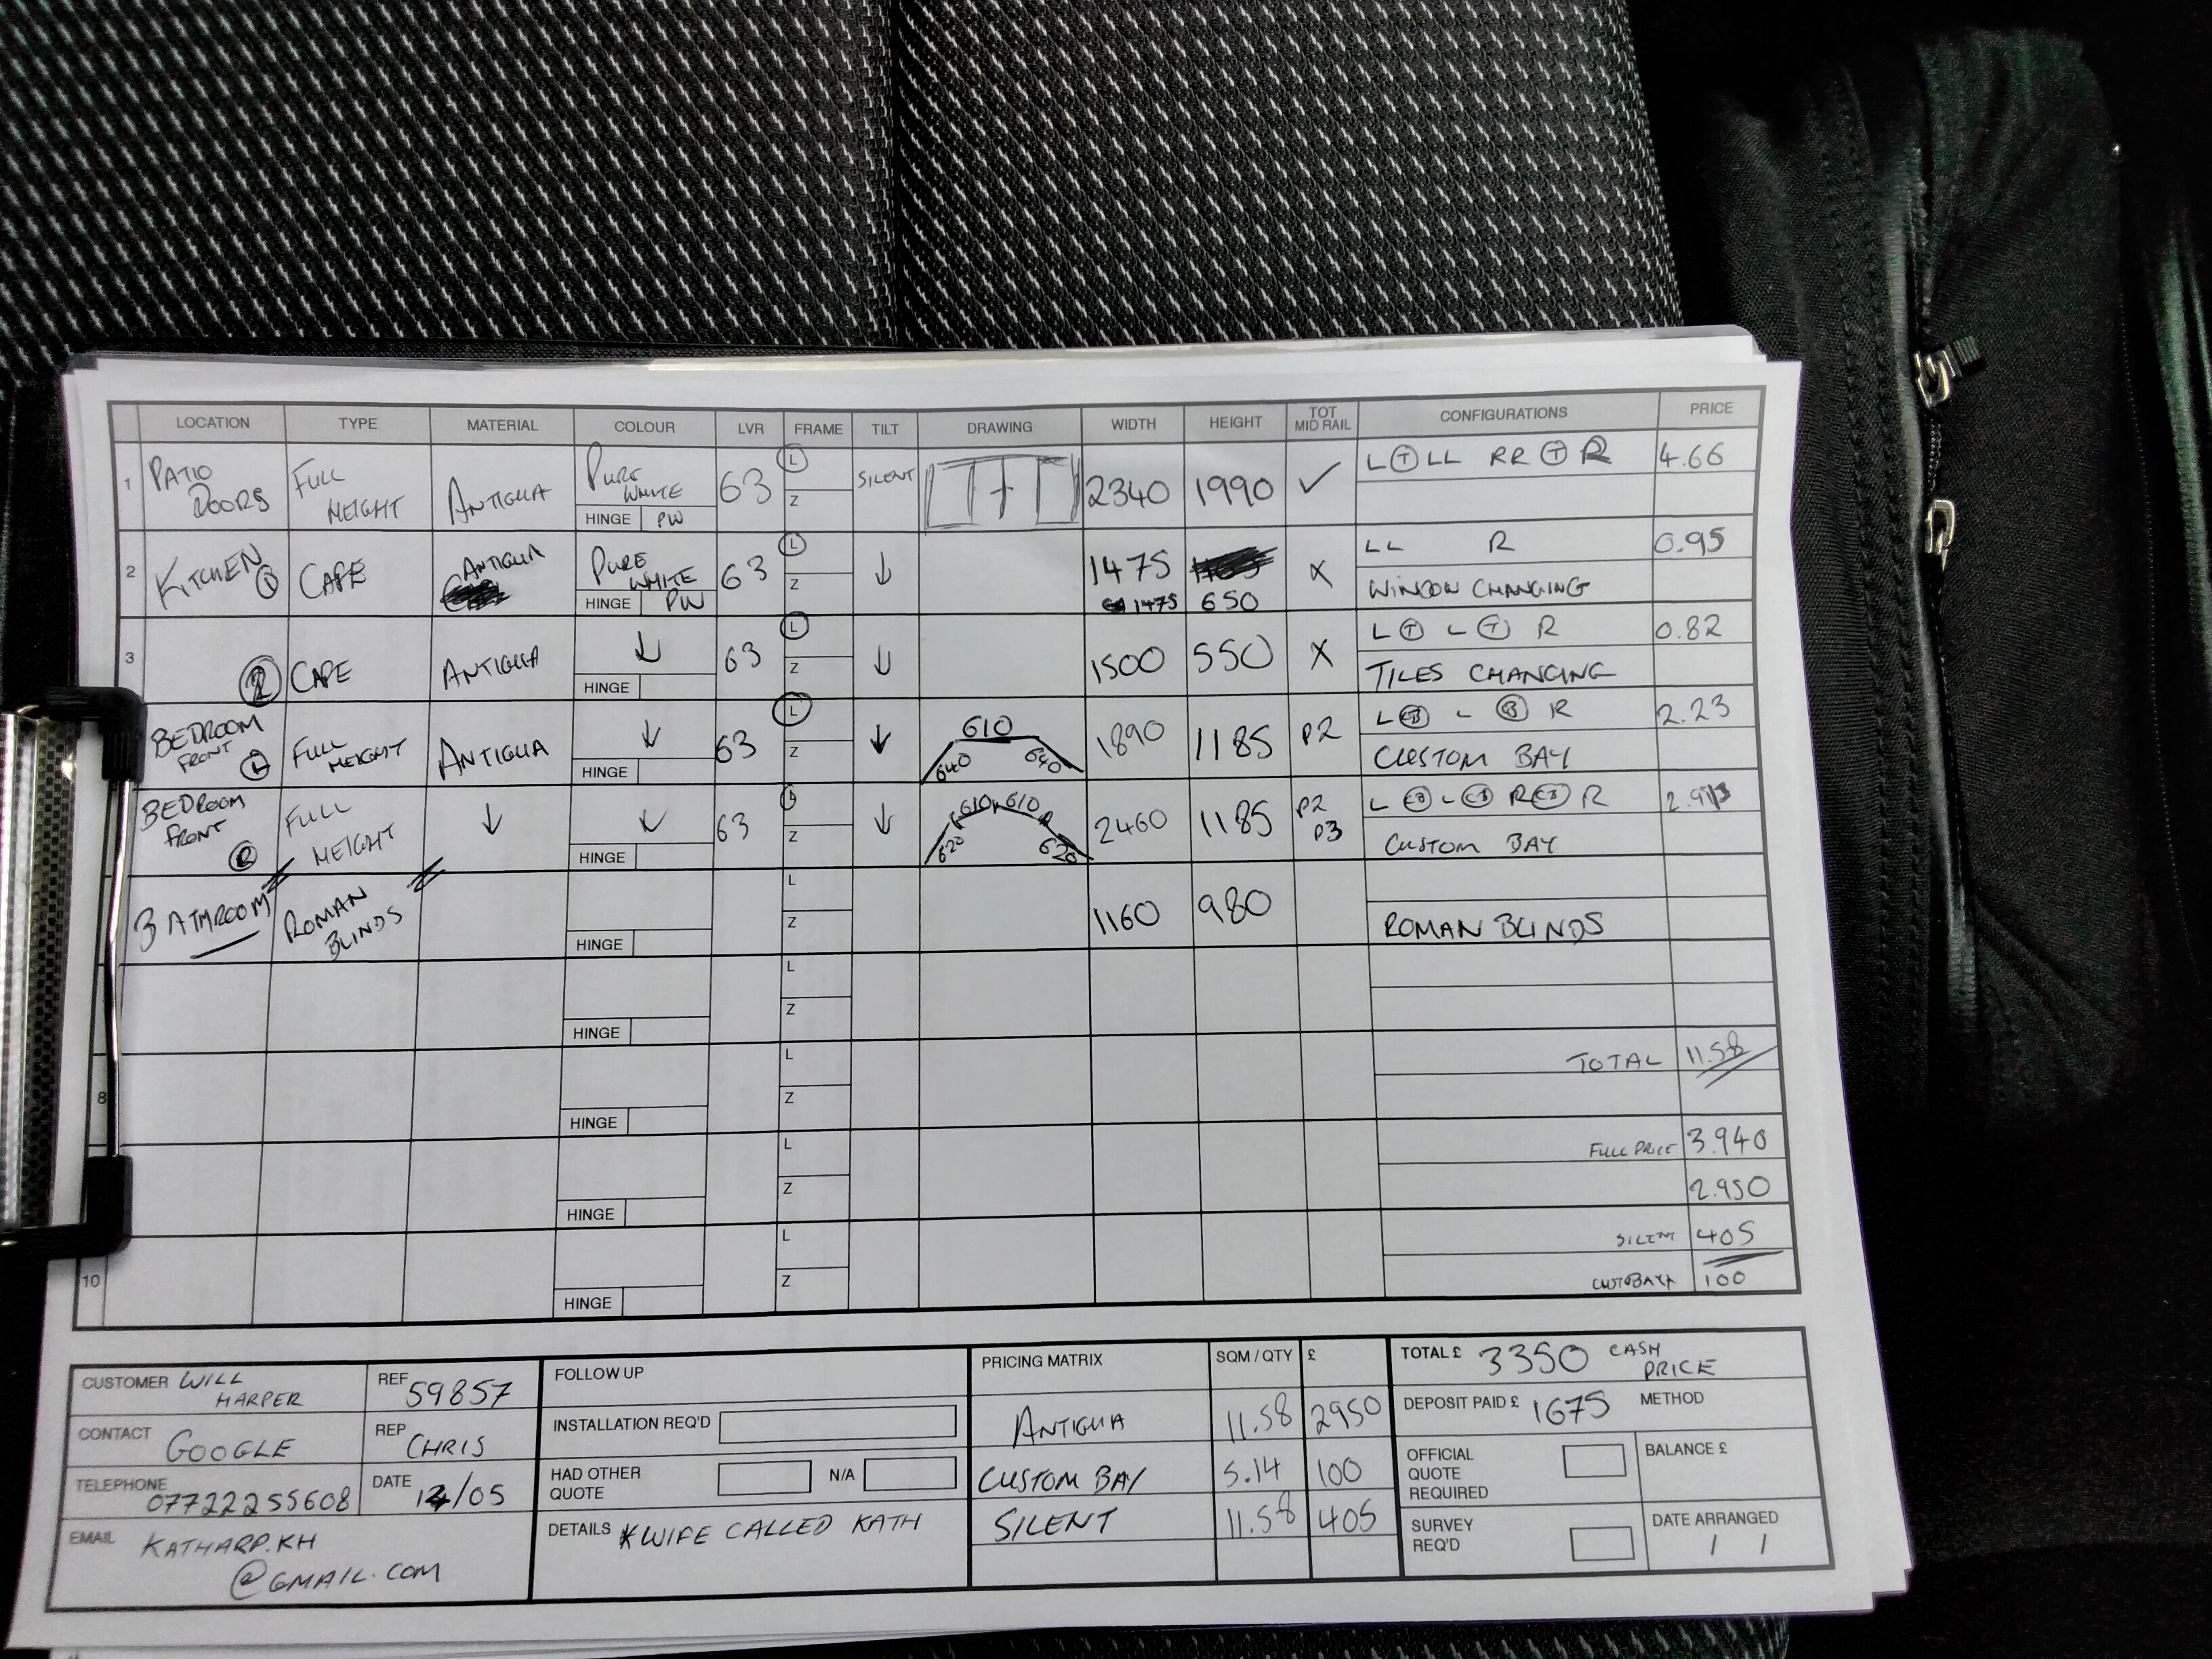 LOCATION TYPE MATERIAL COLOUR LVR FRAME TILT DRAWING WIDTH HEIGHT TOT MID RAIL CONFIGURATIONS PRICE
1 PATIO DOORS FULL HEIGHT ANTIGUA PURE WHITE HINGE PW 63 L Z SILENT 2340 1990 ✓ L T LL RR T R 4.66
2 KITCHEN 1 CAFE ANTIGUA PURE WHITE HINGE PW 63 L Z ↓ 1475 1475 650 X LL R 0.95
WINDOW CHANGING
3 2 CAFE ANTIGUA ↓ HINGE 63 L Z ↓ 1500 550 X L T L T R 0.82
TILES CHANGING
BEDROOM FRONT L FULL HEIGHT ANTIGUA ↓ HINGE 63 L Z ↓ 640 610 640 1890 1185 P2 L CB L CB R 2.23
CUSTOM BAY
BEDROOM FRONT R FULL HEIGHT ↓ ↓ HINGE 63 L Z ↓ 620 610 610 620 2460 1185 P2 P3 L CB L CB R CB R
CUSTOM BAY
BATHROOM ROMAN BLINDS HINGE L Z 1160 980
ROMAN BLINDS
HINGE L Z
8 HINGE L Z TOTAL 11.58
HINGE L Z FULL PRICE 3.940
2.950
10 HINGE L Z SILENT 405
100
CUSTOMER WILL HARPER
REF 59857
CONTACT GOOGLE
REP CHRIS
TELEPHONE 07722255608
DATE /05
EMAIL KATHARP.KH
@GMAIL.COM
FOLLOW UP
INSTALLATION REQ'D
HAD OTHER QUOTE N/A
DETAILS WIFE CALLED KATH
PRICING MATRIX SQM / QTY £
ANTIGUA 11.58 2950
CUSTOM BAY 5.14 100
SILENT 11.58 405
TOTAL £ 3350 CASH PRICE
DEPOSIT PAID £ 1675 METHOD
OFFICIAL QUOTE REQUIRED
BALANCE £
SURVEY REQ'D
DATE ARRANGED
/ /